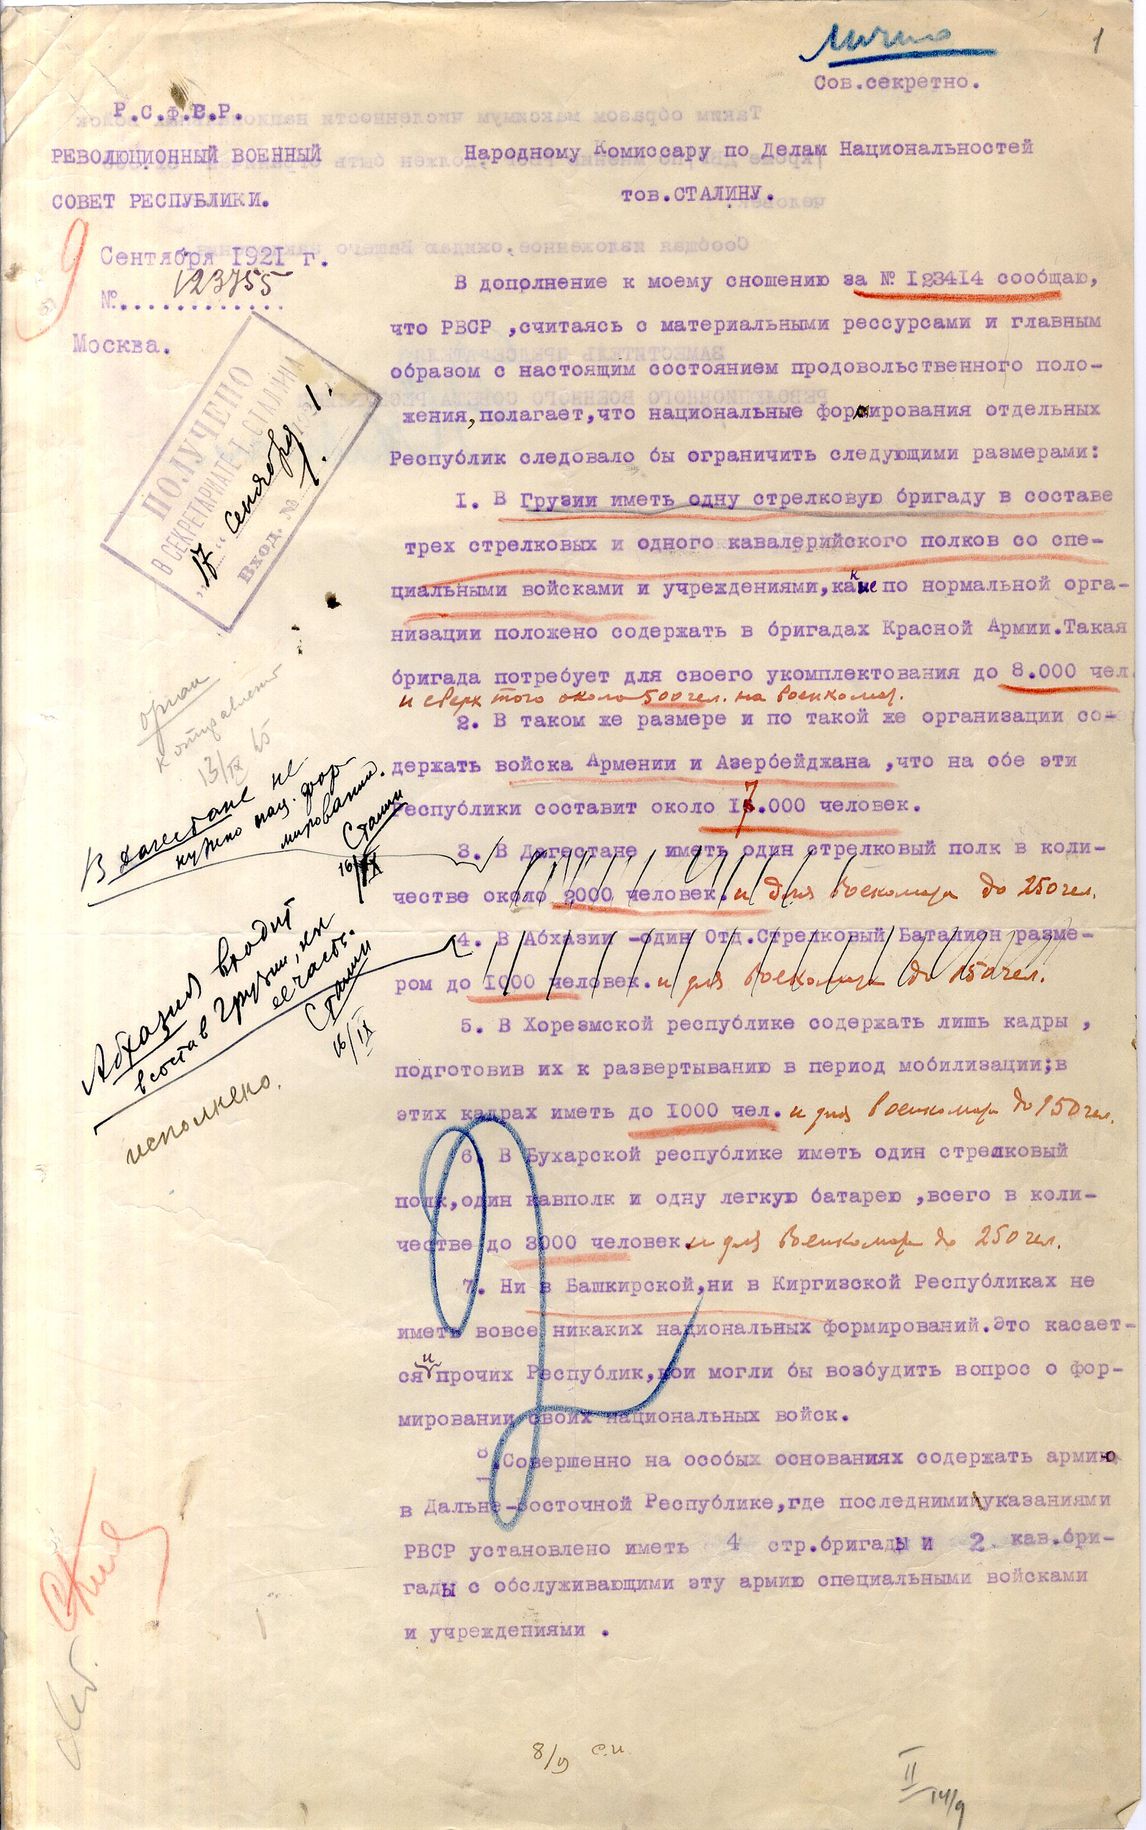 Лично
1
Сов.секретно.
Р.С.Ф.С.Р.
РЕВОЛЮЦИОННЫЙ ВОЕННЫЙ
СОВЕТ РЕСПУБЛИКИ.
9
Сентября 1921 г.
№. 123755
Москва.
Народному Комиссару по Делам Национальностей
тов.СТАЛИНУ.
ПОЛУЧЕНО
В СЕКРЕТАРИАТЕ Т. СТАЛИНА
"17" сентября 1921 г.
Вход. №
В дополнение к моему сношению за № 123414 сообщаю,
что РВСР ,считаясь с материальными рессурсами и главным
образом с настоящим состоянием продовольственного поло-
жения,полагает,что национальные формирования отдельных
Республик следовало бы ограничить следующими размерами:
1. В Грузии иметь одну стрелковую бригаду в составе
трех стрелковых и одного кавалерийского полков со спе-
циальными войсками и учреждениями,какие по нормальной орга-
низации положено содержать в бригадах Красной Армии.Такая
бригада потребует для своего укомплектования до 8.000 чел.
и сверх того около 500 чел. на военкомат.
2. В таком же размере и по такой же организации со-
держать войска Армении и Азербейджана ,что на обе эти
Республики составит около 17.000 человек.
3. В Дагестане иметь один стрелковый полк в коли-
честве около 2000 человек. и для военкомата до 250 чел.
4. В Абхазии -один Отд.Стрелковый Баталион разме-
ром до 1000 человек. и для военкомата до 150 чел.
5. В Хорезмской республике содержать лишь кадры ,
подготовив их к развертыванию в период мобилизации;в
этих кадрах иметь до 1000 чел. и для военкомата до 150 чел.
6. В Бухарской республике иметь один стрелковый
полк,один кавполк и одну легкую батарею ,всего в коли-
честве до 3000 человек. и для военкомата до 250 чел.
7. Ни в Башкирской,ни в Киргизской Республиках не
иметь вовсе никаких национальных формирований.Это касает-
ся и прочих Республик,кои могли бы возбудить вопрос о фор-
мировании своих национальных войск.
8.Совершенно на особых основаниях содержать армию
в Дальне-Восточной Республике,где последними указаниями
РВСР установлено иметь 4 стр.бригады и 2 кав.бри-
гады с обслуживающими эту армию специальными войсками
и учреждениями .
13/IX
В Дагестане не
нужно нац. фор-
мирований.
Сталин
16/IX
Абхазия входит
в состав Грузии, как
ее часть.
Сталин
16/IX
исполнено.
8/9 с.и.
II
14/9